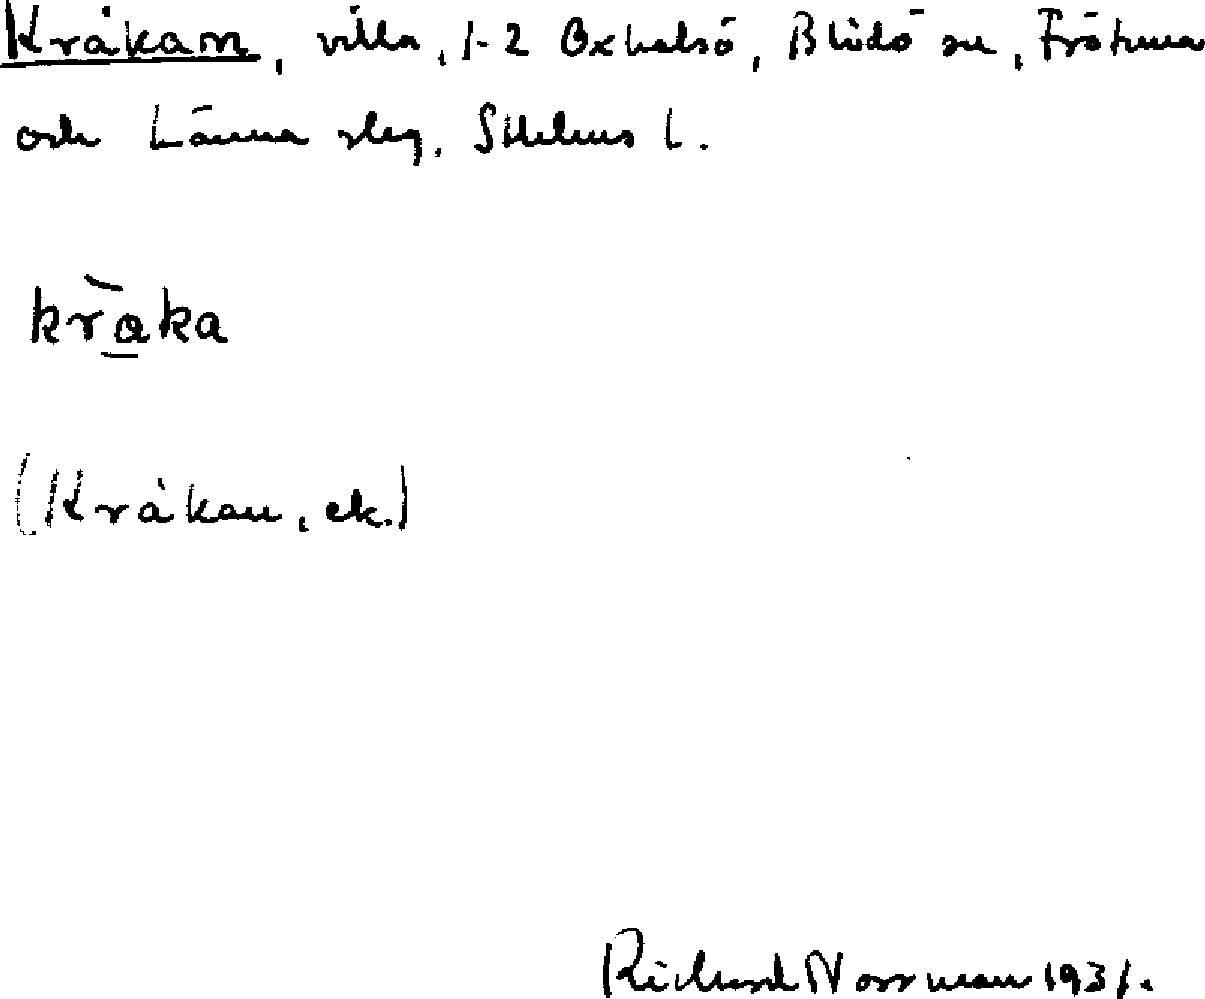 Kråkan, villa, 1-2 Oxhalsö, Blidö sn, Frötuna
och Länna slg. Sthlms l.
kråka
(Kråkan, ek.)
Richard Norrman 1931.